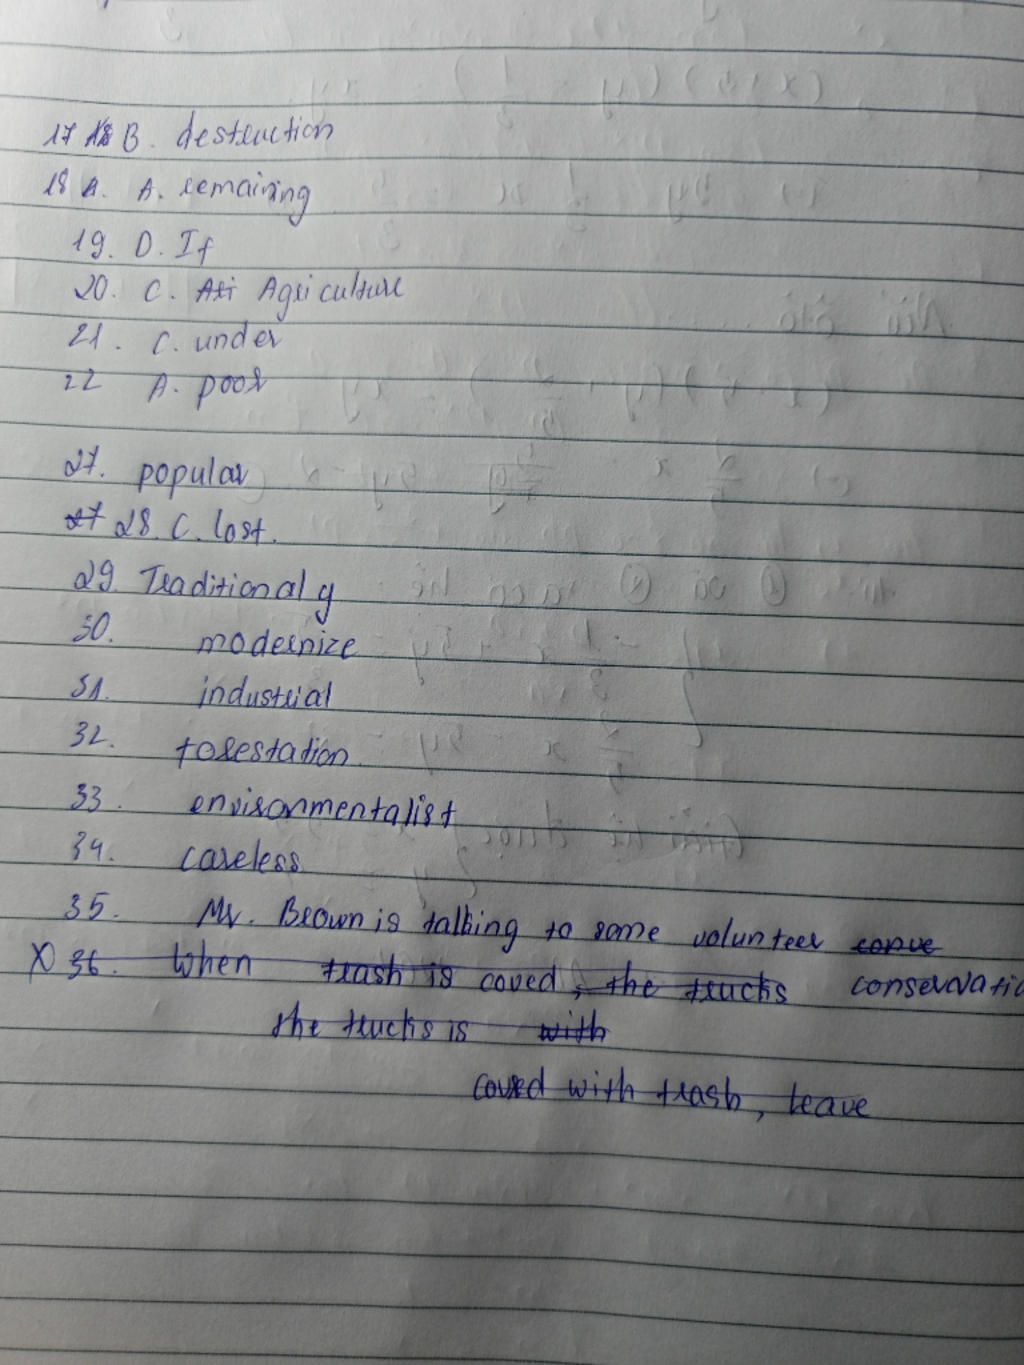 17 B. destruction
18 A. A. remaining
19. D. If
20. C. Agriculture
21. C. under
22 A. poor
27. popular
27 28. C. lost.
29. Traditional y
30. modernize
31. industrial
32. forestation
33. environmentalist
34. careless
35. Mr. Brown is talking to some volunteer conve
X 36. When trash is coved, the trucks conservatio
the trucks is with
coved with trash, leave